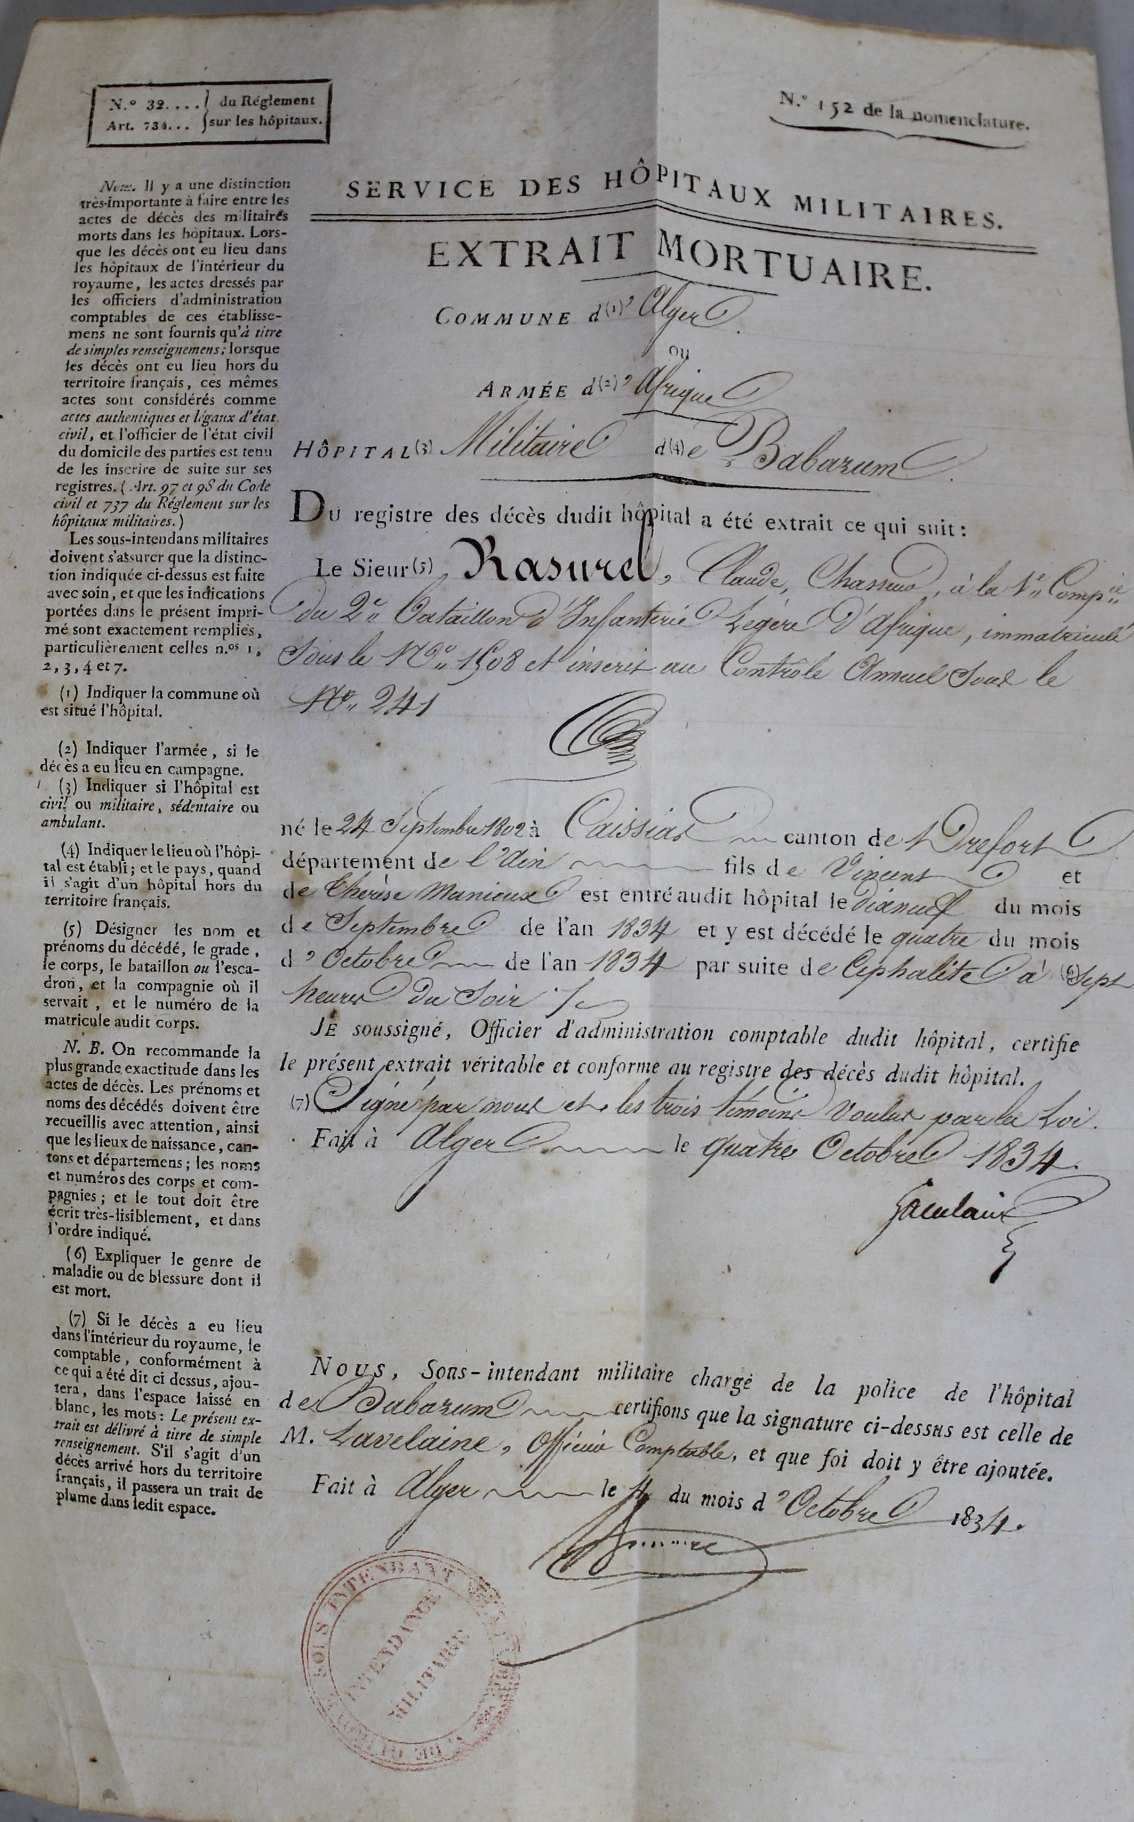 N.º 32.... } du Réglement
Art. 734... } sur les hôpitaux.
N.º 152 de la nomenclature.
SERVICE DES HÔPITAUX MILITAIRES.
EXTRAIT MORTUAIRE.
COMMUNE d(1)' Alger.
OU
ARMÉE d(2)' Afrique
HÔPITAL (3) Militaire d(4)e Babazum.
DU registre des décès dudit hôpital a été extrait ce qui suit:
Le Sieur (5) Rasurel, Claude, Chasseur, à la 1re Compie
du 2e Bataillon d'Infanterie Légère d'Afrique, immatriculé
Sous le No 1508 et inscrit au Contrôle Annuel Sous le
No 241
né le 24 Septembre 1802 à Caissiat canton de Trefort
département de l'Ain fils de Vincent et
de Therèse Manieux est entré audit hôpital le dixneuf du mois
de Septembre de l'an 1834 et y est décédé le quatre du mois
d'Octobre de l'an 1834 par suite de Céphalite à (6) Sept
heures du Soir
JE soussigné, Officier d'administration comptable dudit hôpital, certifie
le présent extrait véritable et conforme au registre des décès dudit hôpital.
(7) Signé par nous et les trois témoins Voulus par la Loi.
Fait à Alger le quatre Octobre 1834.
NOUS, Sous-intendant militaire chargé de la police de l'hôpital
de Babazum certifions que la signature ci-dessus est celle de
M. Lavelaine, Officier Comptable, et que foi doit y être ajoutée.
Fait à Alger le 4 du mois d'Octobre 1834.
SOUS INTENDANT
INTENDANCE
MILITAIRE
Nota. Il y a une distinction
très-importante à faire entre les
actes de décès des militaires
morts dans les hôpitaux. Lors-
que les décès ont eu lieu dans
les hôpitaux de l'intérieur du
royaume, les actes dressés par
les officiers d'administration
comptables de ces établisse-
mens ne sont fournis qu'à titre
de simples renseignemens; lorsque
les décès ont eu lieu hors du
territoire français, ces mêmes
actes sont considérés comme
actes authentiques et légaux d'état
civil, et l'officier de l'état civil
du domicile des parties est tenu
de les inscrire de suite sur ses
registres. (Art. 97 et 98 du Code
civil et 737 du Réglement sur les
hôpitaux militaires.)
Les sous-intendans militaires
doivent s'assurer que la distinc-
tion indiquée ci-dessus est faite
avec soin, et que les indications
portées dans le présent impri-
mé sont exactement remplies,
particulièrement celles n.os 1,
2, 3, 4 et 7.
(1) Indiquer la commune où
est situé l'hôpital.
(2) Indiquer l'armée, si le
décès a eu lieu en campagne.
(3) Indiquer si l'hôpital est
civil ou militaire, sédentaire ou
ambulant.
(4) Indiquer le lieu où l'hôpi-
tal est établi; et le pays, quand
il s'agit d'un hôpital hors du
territoire français.
(5) Désigner les nom et
prénoms du décédé, le grade,
le corps, le bataillon ou l'esca-
dron, et la compagnie où il
servait, et le numéro de la
matricule audit corps.
N. B. On recommande la
plus grande exactitude dans les
actes de décès. Les prénoms et
noms des décédés doivent être
recueillis avec attention, ainsi
que les lieux de naissance, can-
tons et départemens; les noms
et numéros des corps et com-
pagnies; et le tout doit être
écrit très-lisiblement, et dans
l'ordre indiqué.
(6) Expliquer le genre de
maladie ou de blessure dont il
est mort.
(7) Si le décès a eu lieu
dans l'intérieur du royaume, le
comptable, conformément à
ce qui a été dit ci dessus, ajou-
tera, dans l'espace laissé en
blanc, les mots: Le présent ex-
trait est délivré à titre de simple
renseignement. S'il s'agit d'un
décès arrivé hors du territoire
français, il passera un trait de
plume dans ledit espace.